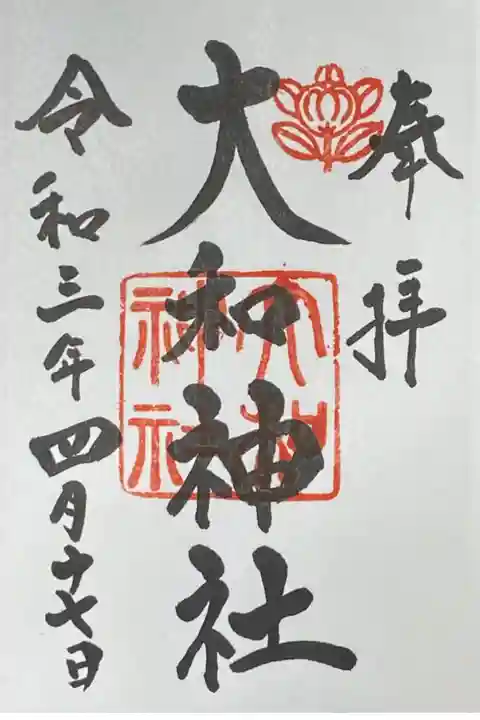 奉拝
大和神社
大和
神社
令和三年四月十七日